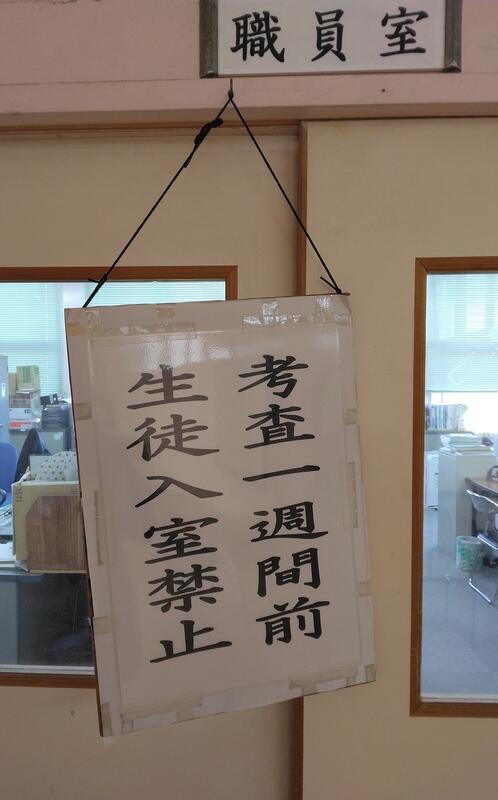 職員室
考査一週間前
生徒入室禁止